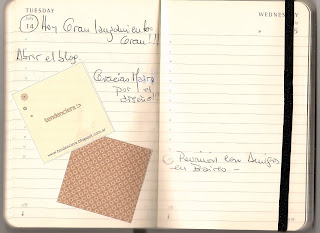 TUESDAY
July
14
Hoy Gran lanzamiento
Gran!!!
Abrir el blog.
Gracias
por el
diseño!!!
tendenciera :>
www.tendenciera.blogspot.com.ar
WEDNESDAY
5
Reunión con Amigos
en